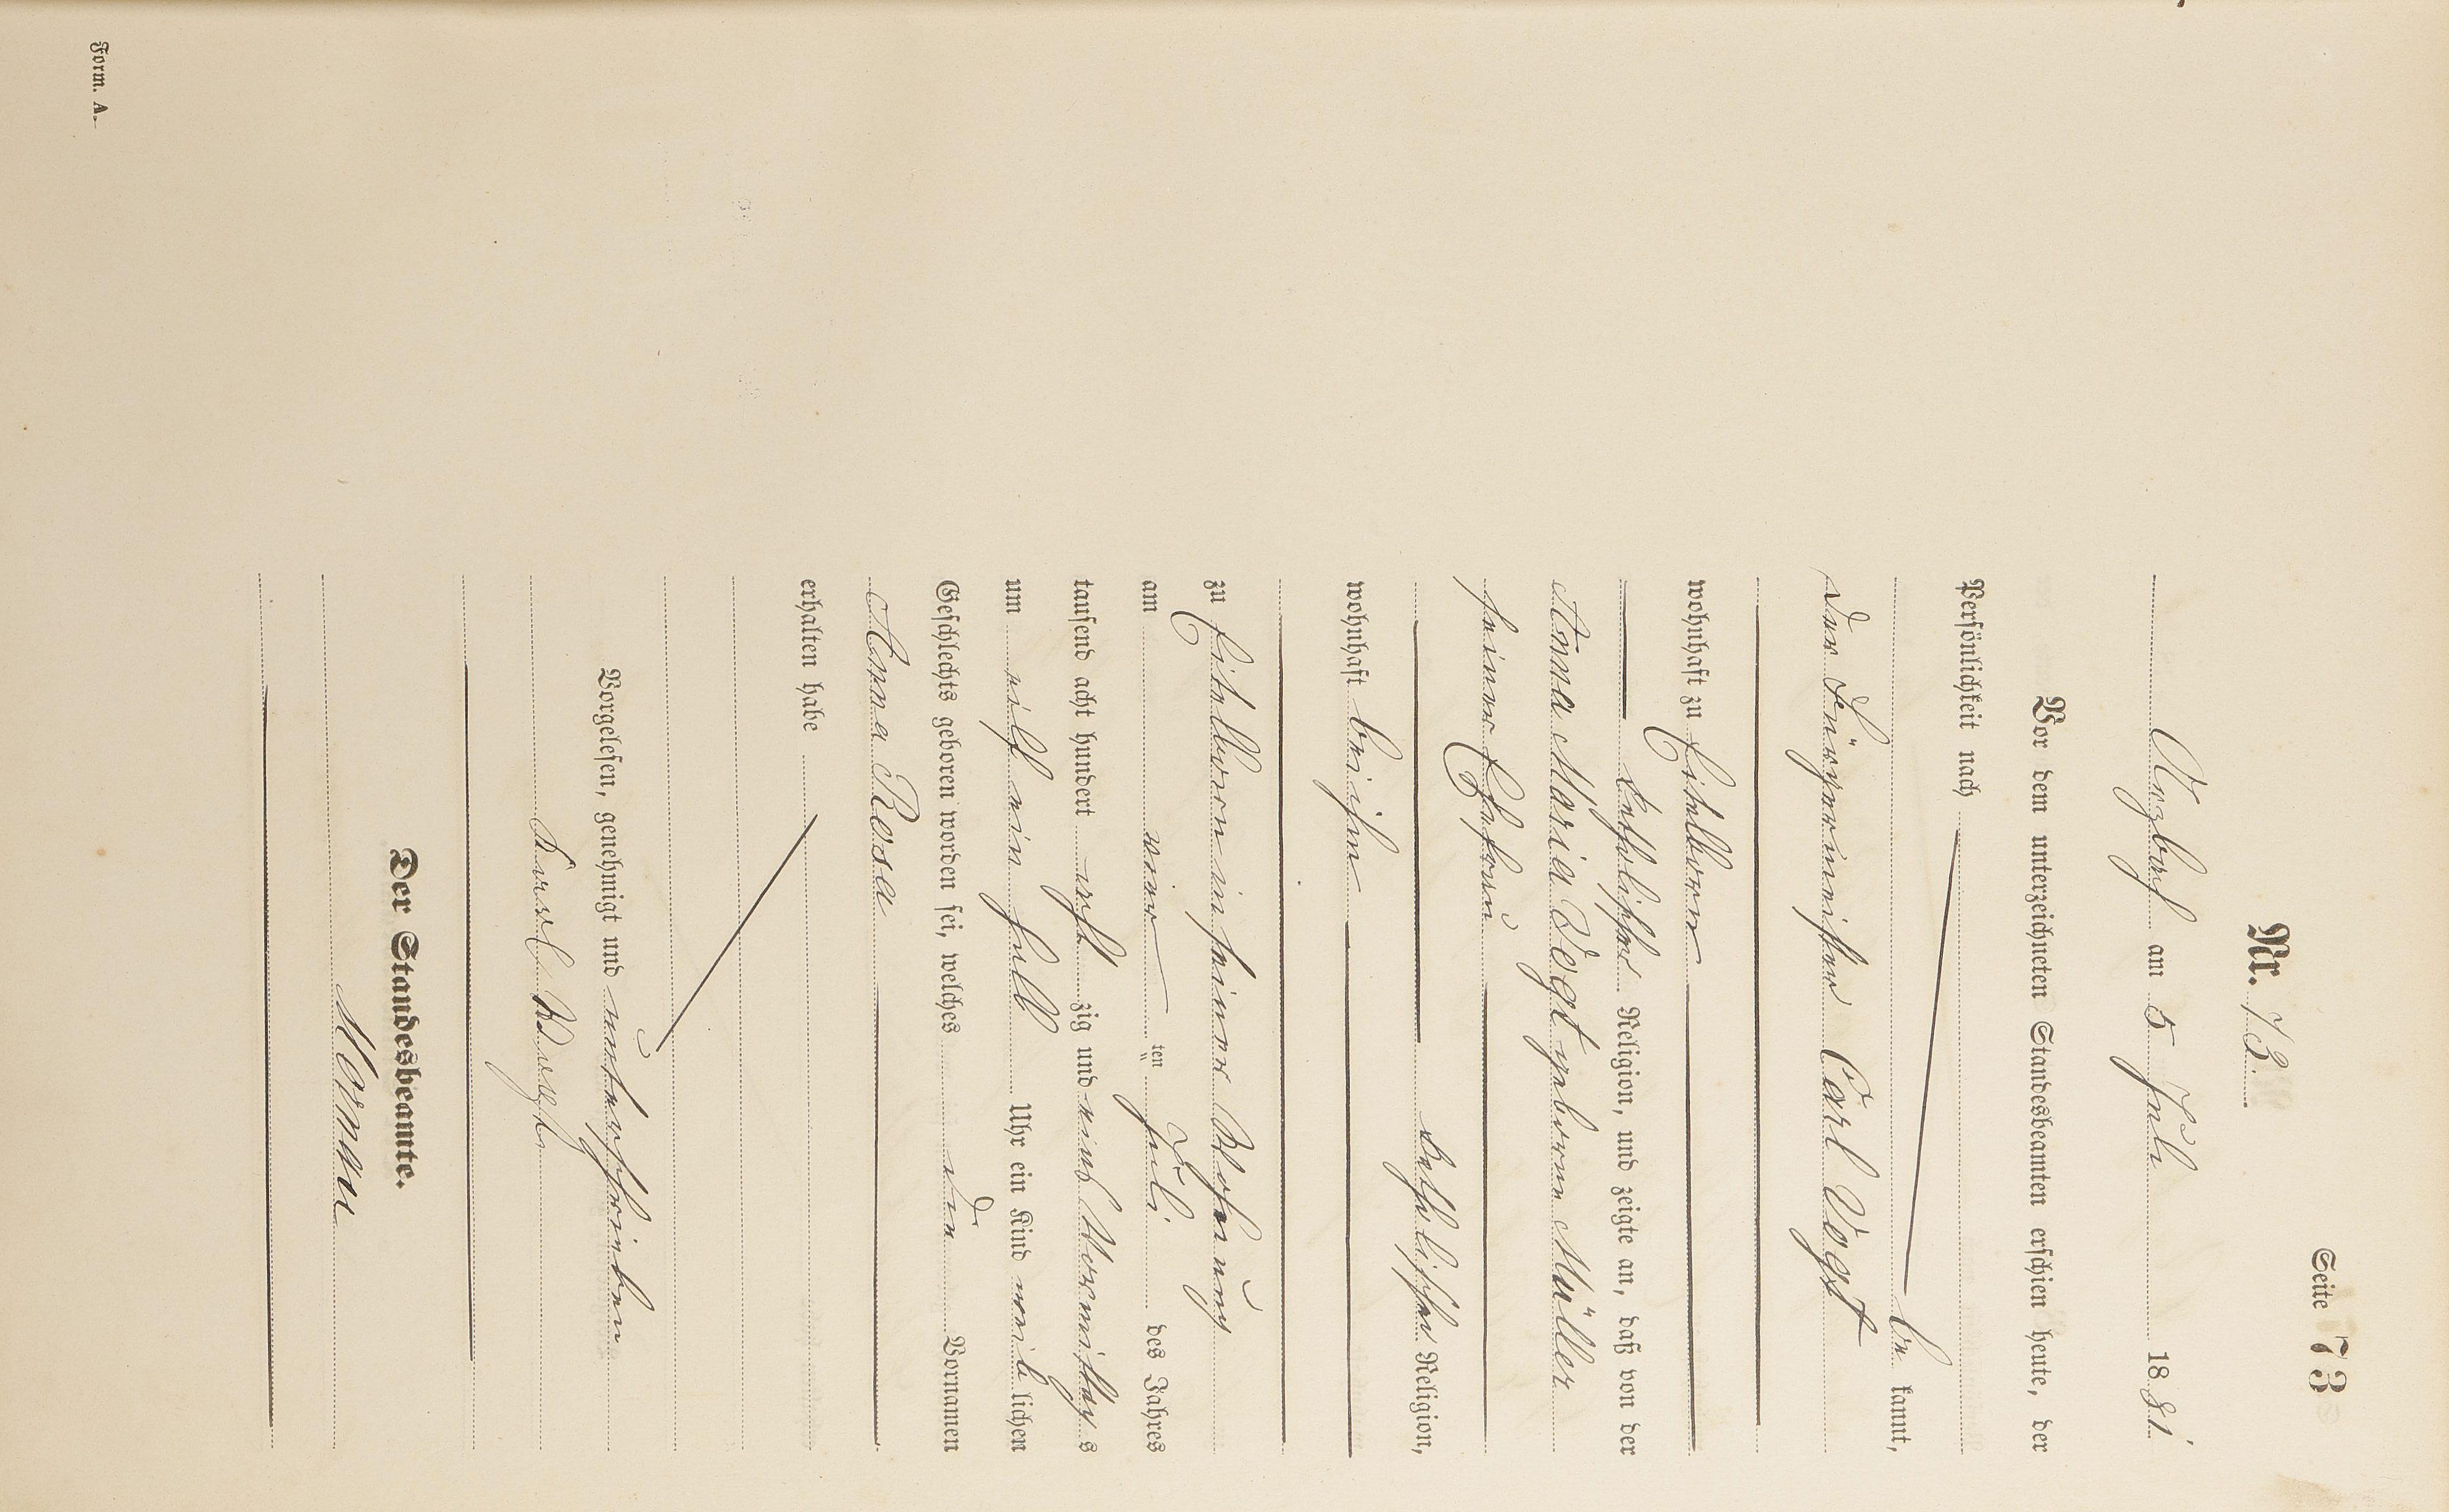 Seite 73
Nr. 73.
Arzbach am 5 Juli 1881
Vor dem unterzeichneten Standesbeamten erschien heute, der
Persönlichkeit nach
be kannt,
der Bürgermeister Carl Vogt
wohnhaft zu Eitelborn
katholischer Religion, und zeigte an, daß von der
Anna Maria Vogt geborne Müller
seiner Ehefrau
katholischer Religion,
wohnhaft bei ihm
zu Eitelborn in seiner Wohnung
am vier ten Juli des Jahres
tausend acht hundert acht zig und eins Vormittag s
um eilf ein halb Uhr ein Kind weib lichen
Geschlechts geboren worden sei, welches den Vornamen
Anna Rosa
erhalten habe
Vorgelesen, genehmigt und unterschrieben
Karl Vogt
Der Standesbeamte.
Form. A.